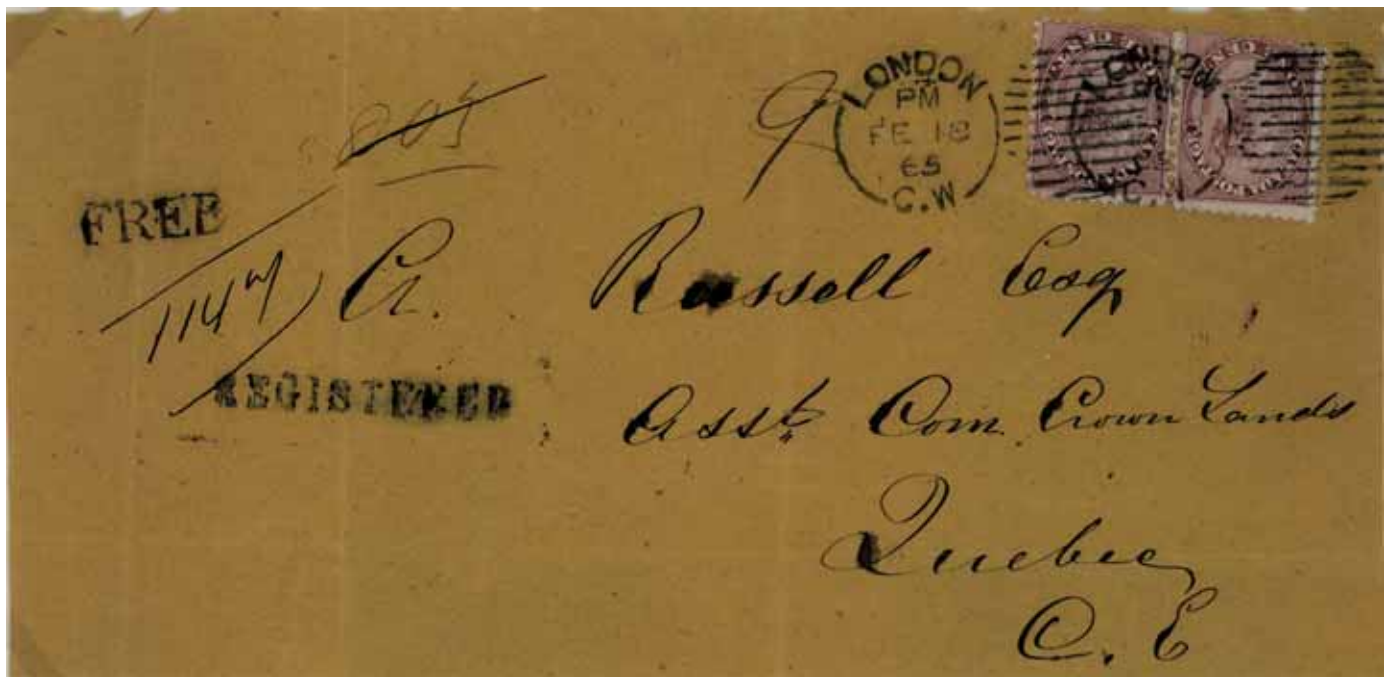 LONDON
PM
FE 18
65
C.W
FREE
1147
A. Russell Esq
REGISTERED
Asst. Com. Crown Lands
Quebec
C. E